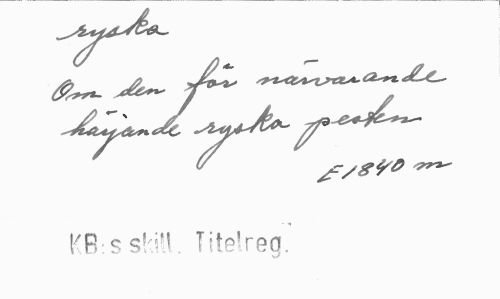 ryska
Om den för närvarande
härjande ryska pesten
E 1840 m
KB:s skill. Titelreg.